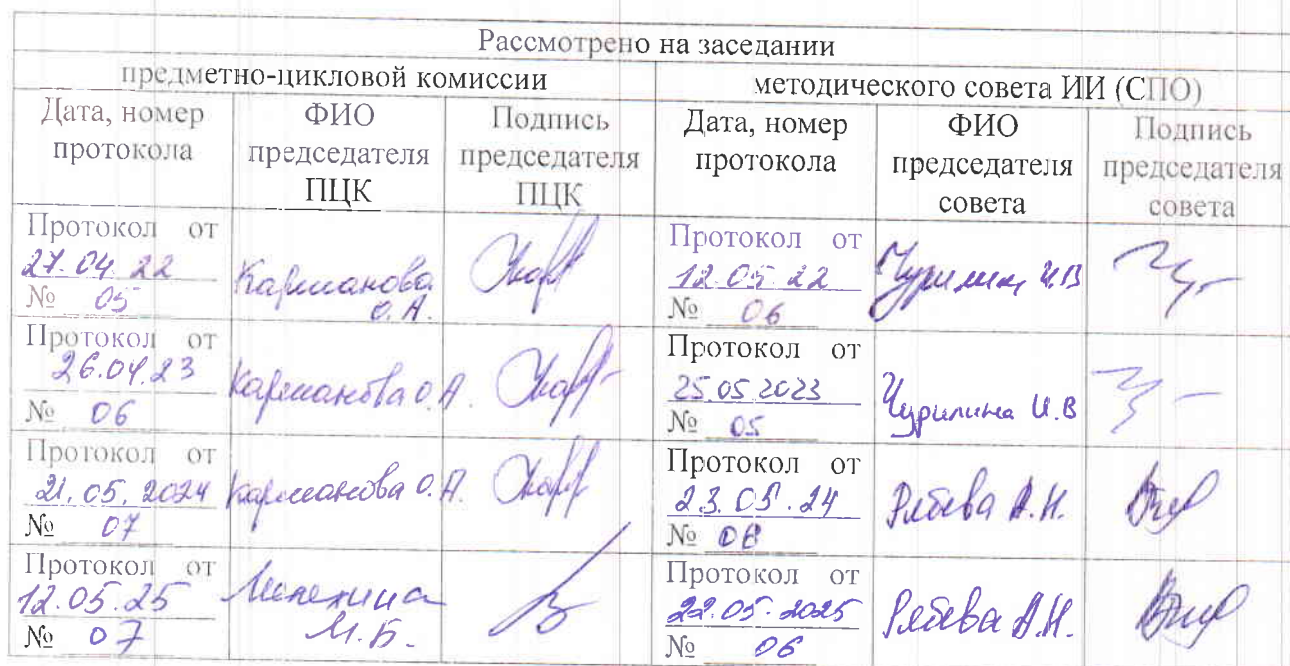 Рассмотрено на заседании
предметно-цикловой комиссии
методического совета ИИ (СПО)
Дата, номер
протокола
ФИО
председателя
ПЦК
Подпись
председателя
ПЦК
Дата, номер
протокола
ФИО
председателя
совета
Подпись
председателя
совета
Протокол от
27.04.22
№ 05
Карманова
О.А.
Протокол от
12.05.22
№ 06
Чурилина И.В
Протокол от
26.04.23
№ 06
Карманова О.А.
Протокол от
25.05.2023
№ 05
Чурилина И.В
Протокол от
21.05.2024
№ 07
Карманова О.А.
Протокол от
23.05.24
№ 06
А.Н.
Протокол от
12.05.25
№ 07
Мелехина
М.Б.
Протокол от
22.05.2025
№ 06
А.Н.